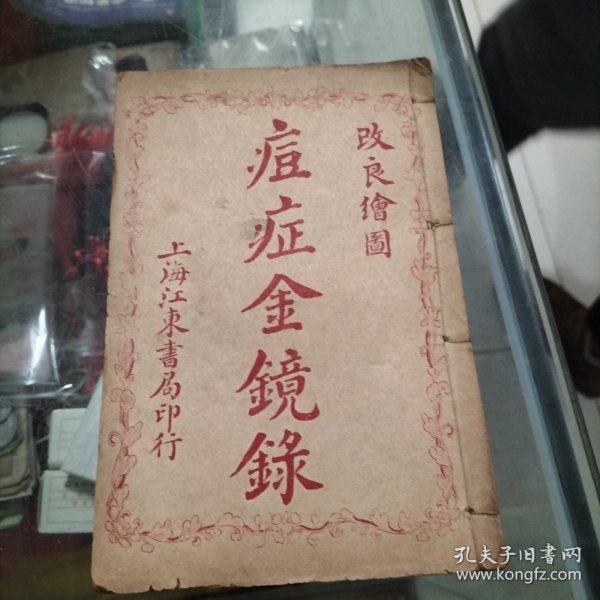 改良繪圖
痘症金鏡錄
上海江東書局印行
孔夫子旧书网
www.kongfz.com